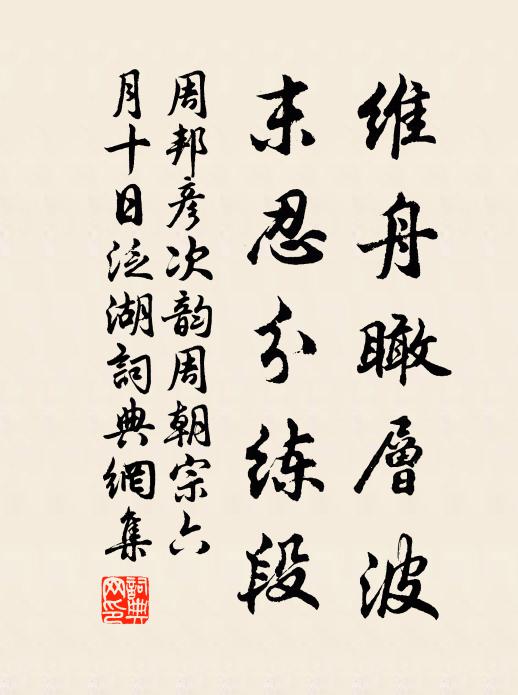 维舟瞰層波
未忍分练段
周邦彦次韵周朝宗六
月十日泛湖詞典網集
詞典網印